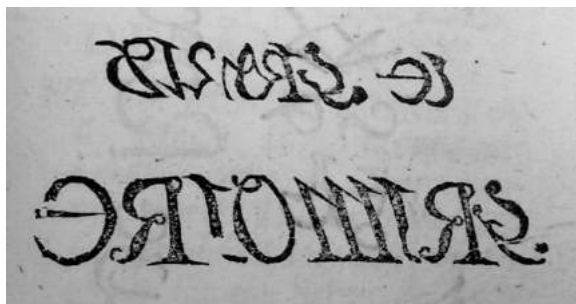 le GRand
GRIMOIRE